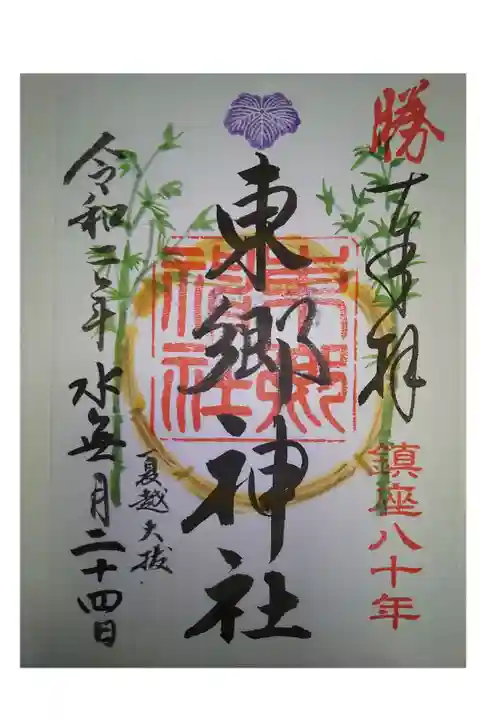 勝
奉拝
鎮座八十年
東郷神社
東郷神社
夏越大祓
令和二年水無月二十四日